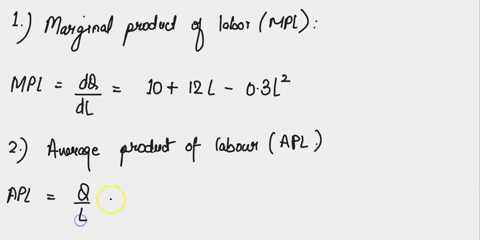 1.) Marginal product of labor (MPL):
MPL = dQ/dL = 10 + 12L - 0.3L²
2.) Average product of labour (APL.)
APL = Q/L .